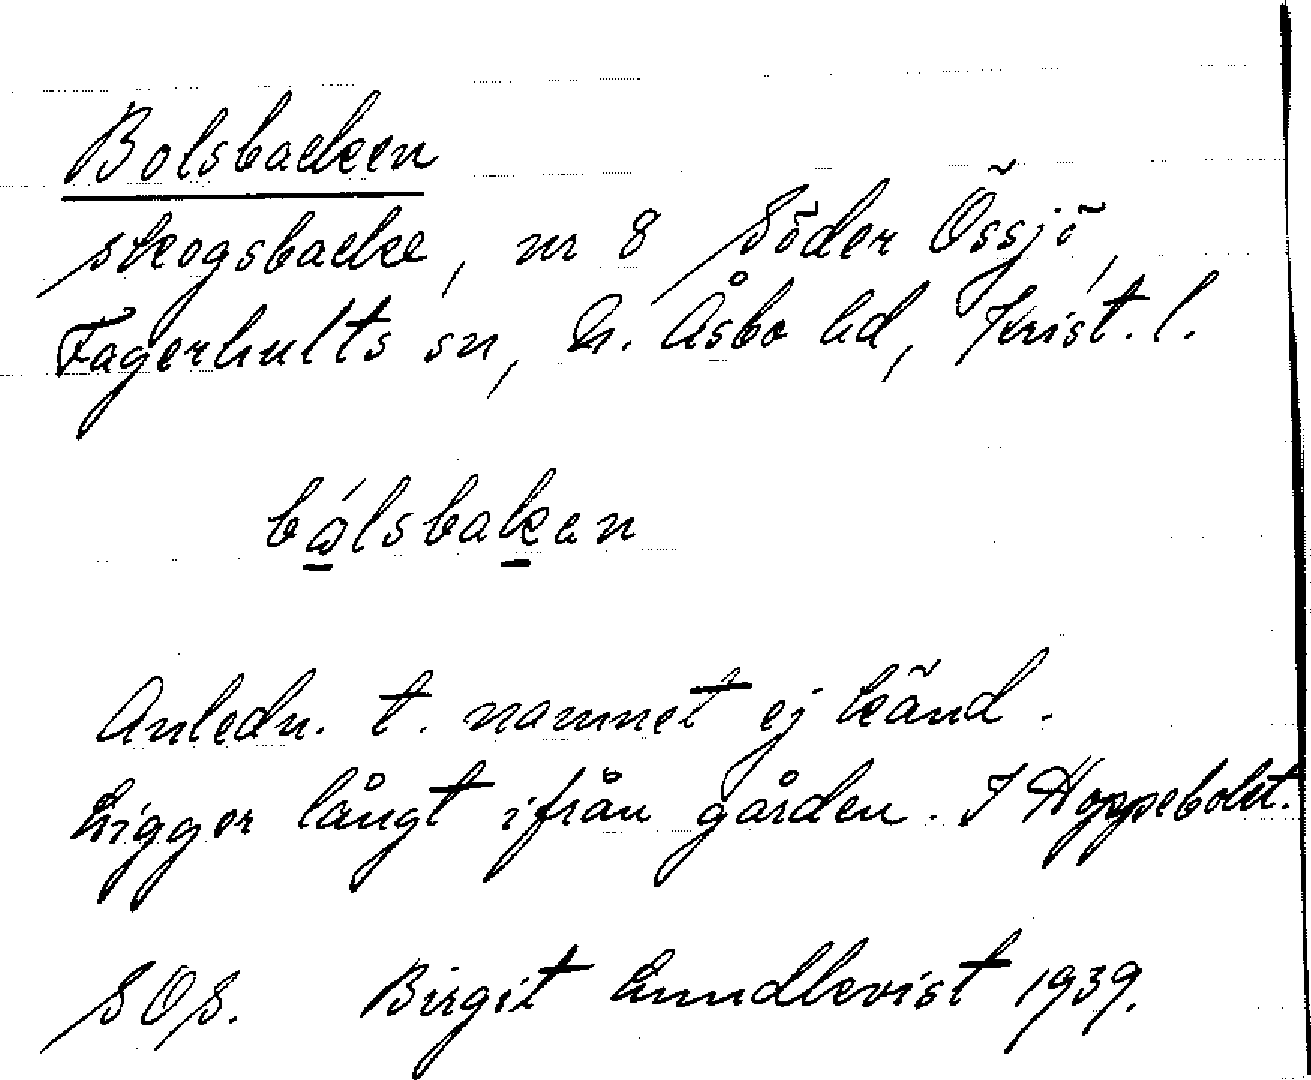 Bolsbacken
skogsbacke, nr 8 Söder Össjö,
Fagerhults sn, N. Åsbo hd, Krist. l.
bólsbaken
Anledn. t. namnet ej känd.
Ligger långt ifrån gården. I Hoppebolet.
SOS. Birgit Lundkvist 1939.